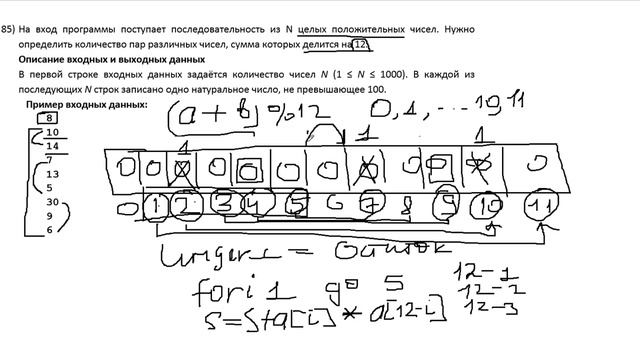 85) На вход программы поступает последовательность из N целых положительных чисел. Нужно
определить количество пар различных чисел, сумма которых делится на 12.
Описание входных и выходных данных
В первой строке входных данных задаётся количество чисел N (1 ≤ N ≤ 1000). В каждой из
последующих N строк записано одно натуральное число, не превышающее 100.
Пример входных данных:
(a + b) % 12 0, 1, ... 10, 11
8
10
14
7
13
5
30
9
6
1 1 1
0 0 0 0 0 0 0 0
0 1 2 3 4 5 6 7 8 9 10 11
индекс = остаток
for i 1 go 5
s = s + a[i] * a[12-i]
12-1
12-2
12-3